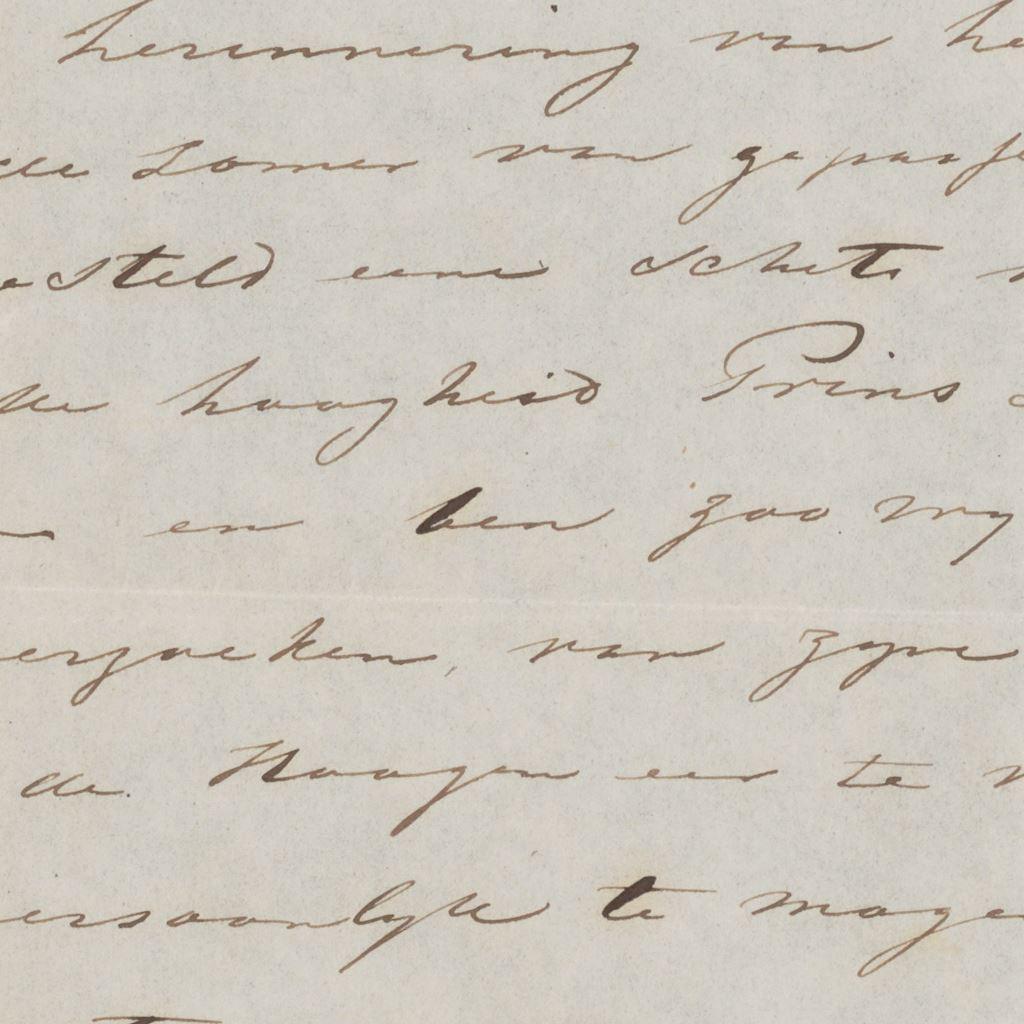 herinnering van he
de Zomer van gepasse
esteld eene schets
ke hoogheid Prins
en ben zoo vry
erzoeken, van zyne
de Hoogen eer te
ersoonlyk te moge